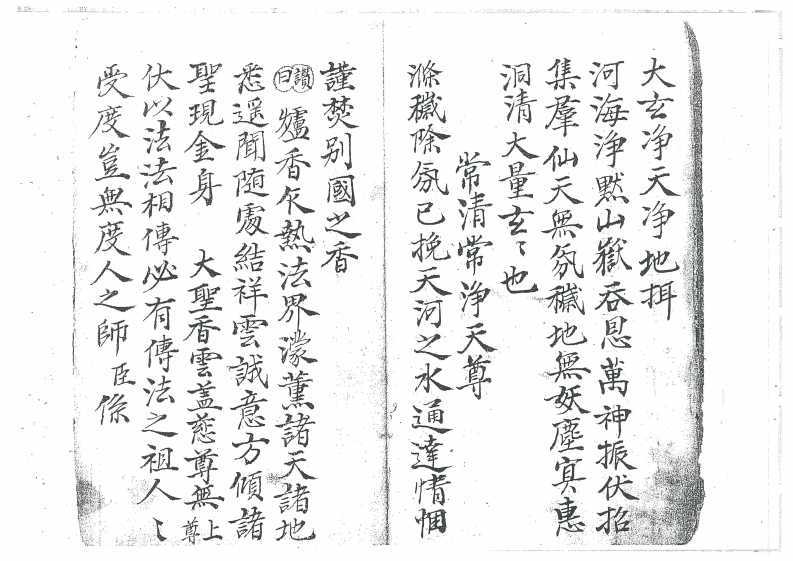 大玄净天净地揖
河海淨黙山嶽吞恩萬神振伏招
集羣仙天無氛穢地無妖塵寘惠
洞清大量玄〻也
常清常淨天尊
滌穢除氛已挽天河之水通達情悃
謹焚别國之香
讃曰 爐香乍熱法界濛薰諸天諸地
悉遥聞随處結祥雲誠意方傾諸
聖現金身 大聖香雲盖慈尊無上尊
伏以法法相傳必有傳法之祖人〻
受度豈無度人之師 臣係